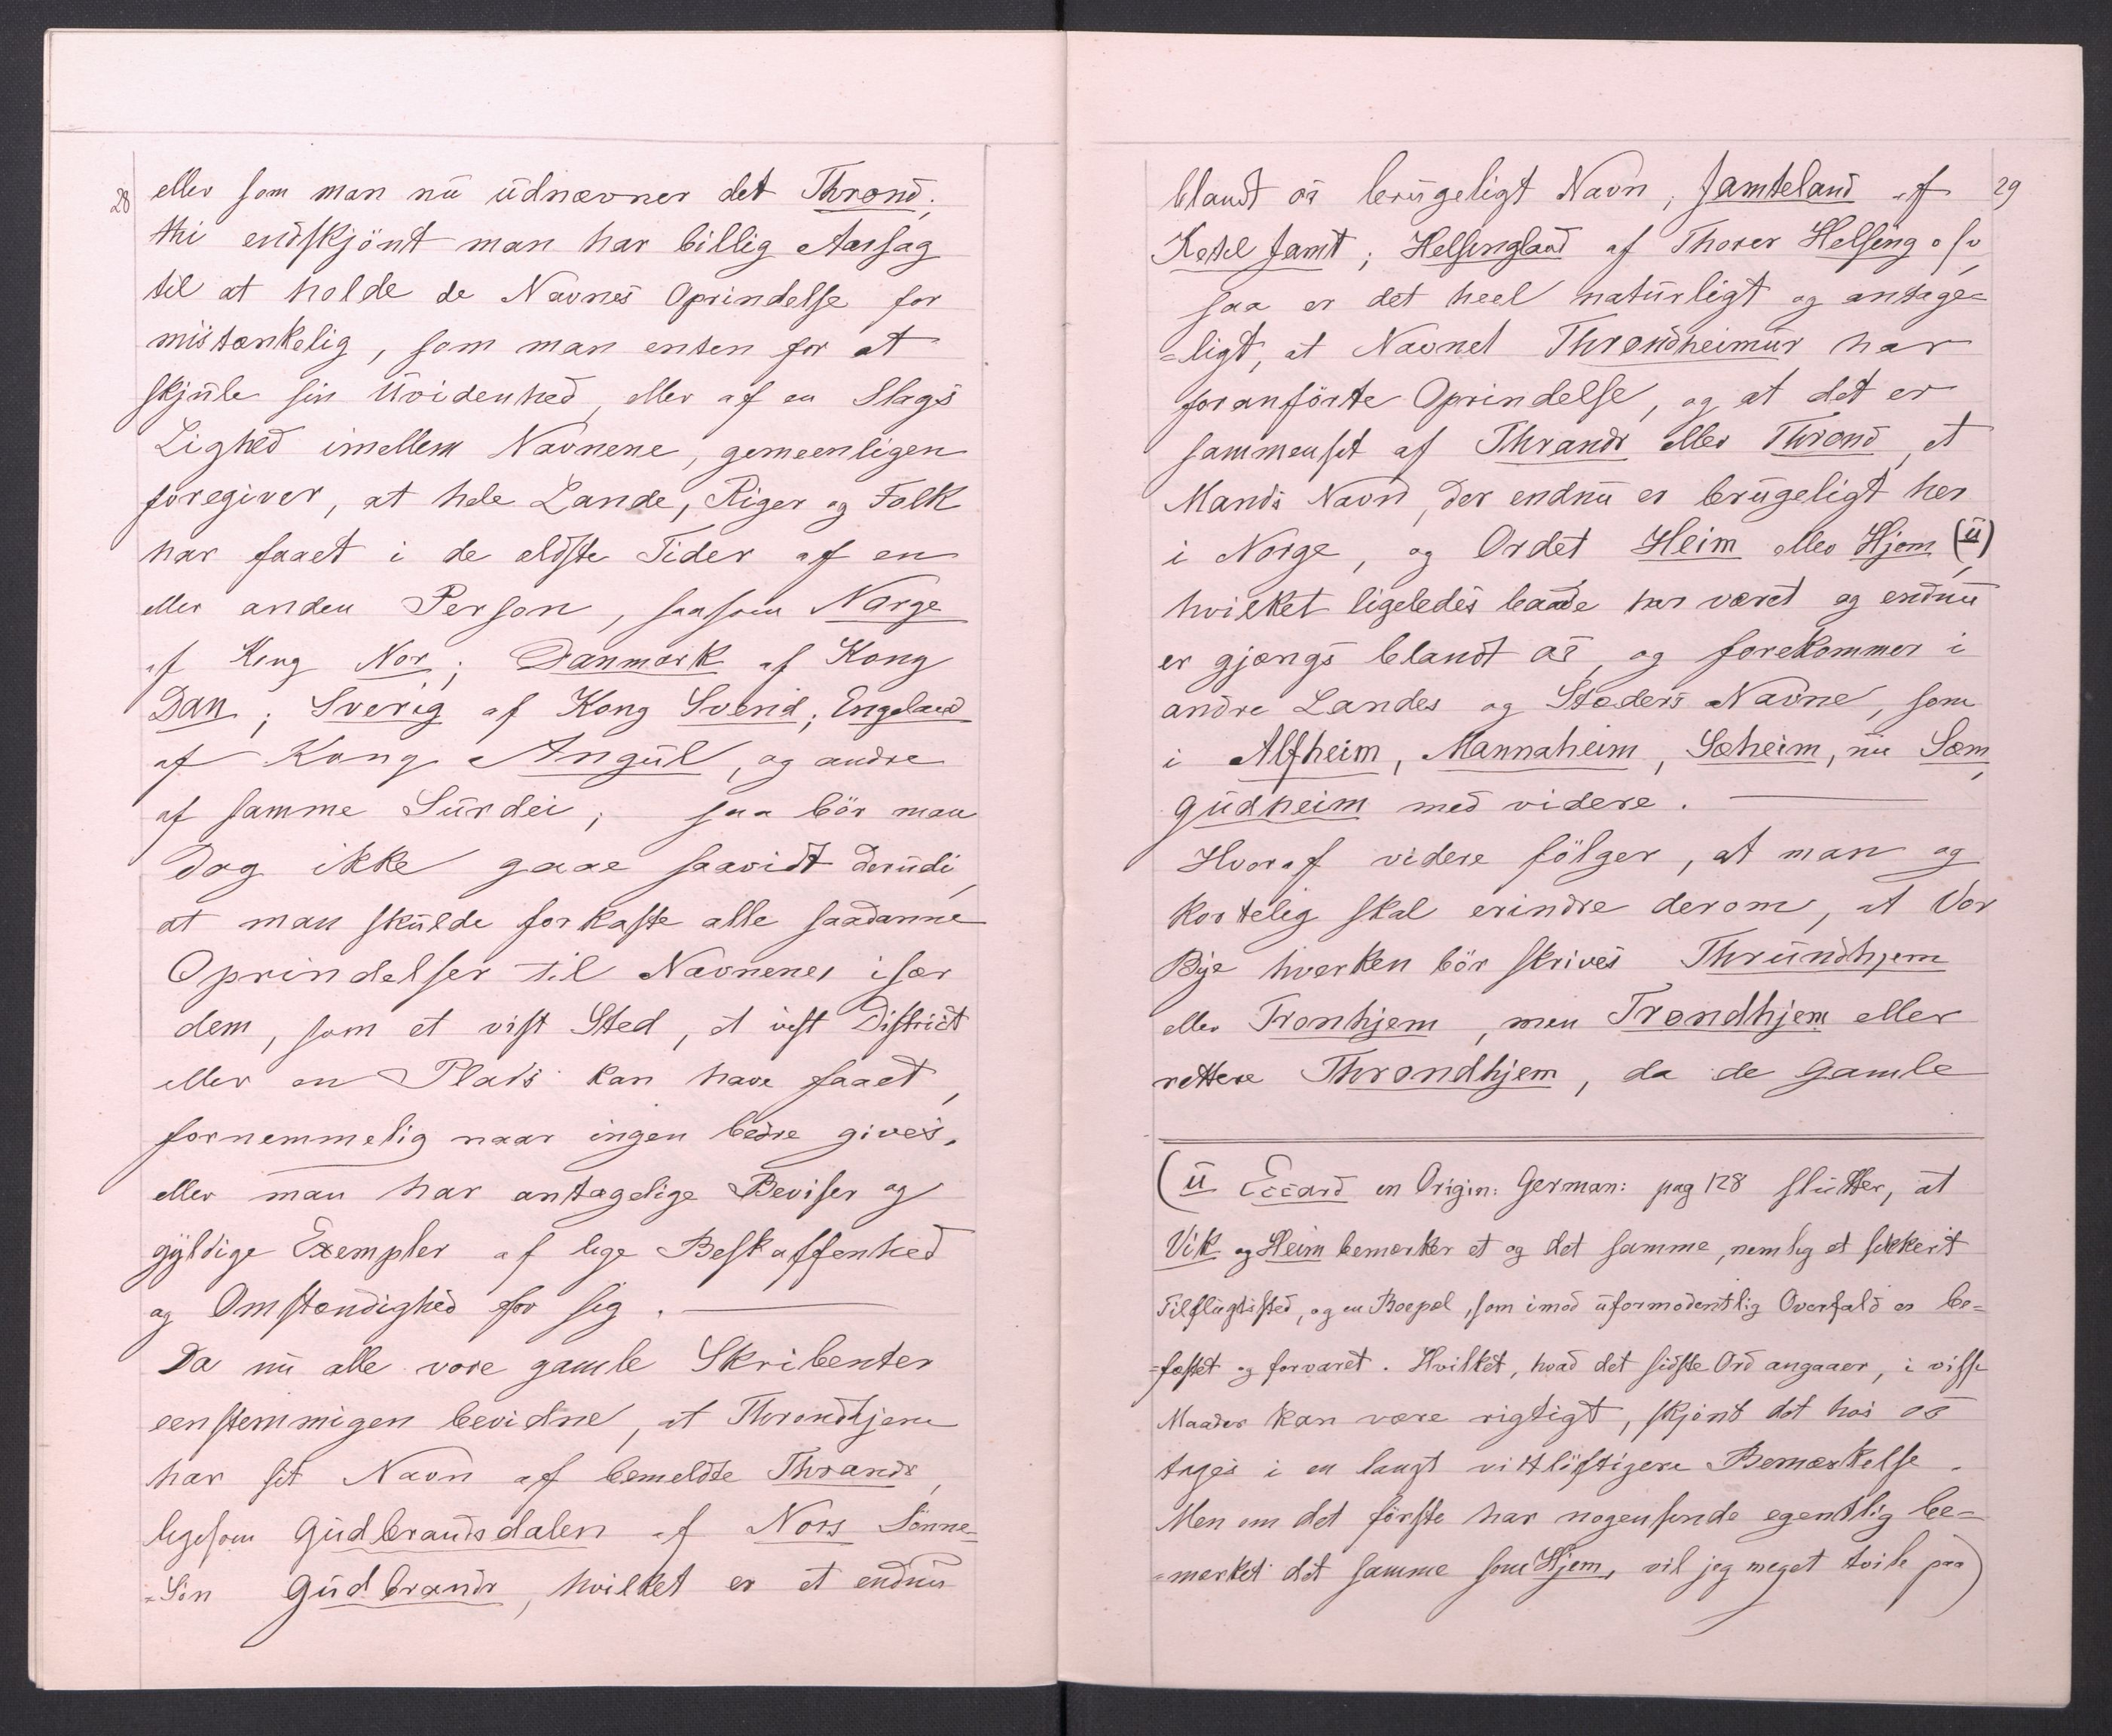 28
eller som man nu udnævner det Thrond;
thi endskjönt man har billig Aarsag
til at holde de Navnes Oprindelse for
mistænkelig, som man enten for at
skjule sin Uvidenhed, eller af en Slags
Lighed imellem Navnene, gemeenligen
foregiver, at hele Lande, Riger og Folk
har faaet i de ældste Tider af en
eller anden Person, saasom Norge
af Kong Nor; Danmark af Kong
Dan; Sverig af Kong Svend; Engeland
af Kong Angul, og andre
af samme Surdei; saa bör man
dog ikke gaae saavidt derudi,
at man skulde forkaste alle saadanne
Oprindelser til Navnene, især
dem, som et vist Sted, et vist District
eller en Plads kan have faaet,
fornemmelig naar ingen bedre gives,
eller man har antagelige Beviser og
gyldige Exempler af lige Beskaffenhed
og Omstændighed for sig. —
Da nu alle vore gamle Skribenter
eenstemmigen bevidne, at Throndhjem
har sit Navn af bemeldte Thrandr,
ligesom Gudbrandsdalen af Nors Sönne=
=Sön Gudbrandr, hvilket er et endnu
29
blandt os brugeligt Navn, Jamteland af
Ketil Jamt; Helsingland af Thorer Helsing o s v,
saa er det heel naturligt og antage=
=ligt, at Navnet Throndheimur har
foranförte Oprindelse, og at det er
sammensat af Thrandr eller Thrond, et
Mands Navn, der endnu er brugeligt her
i Norge, og Ordet Heim eller Hjem (u),
hvilket ligeledes baade har været og endnu
er gjængs blandt os, og forekommer i
andre Landes og Stæders Navne, som
i Alfheim, Mannaheim, Sæheim, nu Sæm,
Gudheim med videre. —
Hvoraf videre fölger, at man og
kortelig skal erindre derom, at Vor
Bye hverken bör skrives Thrundhjem
eller Tronhjem, men Trondhjem eller
rettere Throndhjem, da de Gamle
(u Eccard en Origin: German: pag 128 slutter, at
Vik og Heim bemærker et og det samme, nemlig et sikkert
Tilflugtssted, og en Boepæl, som imod uformodentlig Overfald er be=
=fæstet og forvaret. Hvilket, hvad det sidste Ord angaaer, i visse
Maader kan være rigtigt, skjönt det hos os
tages i en langt vittlöftigere Bemærkelse.
Men om det förste har nogensinde egentlig be=
=mærket det samme som Hjem, vil jeg meget tvile paa)